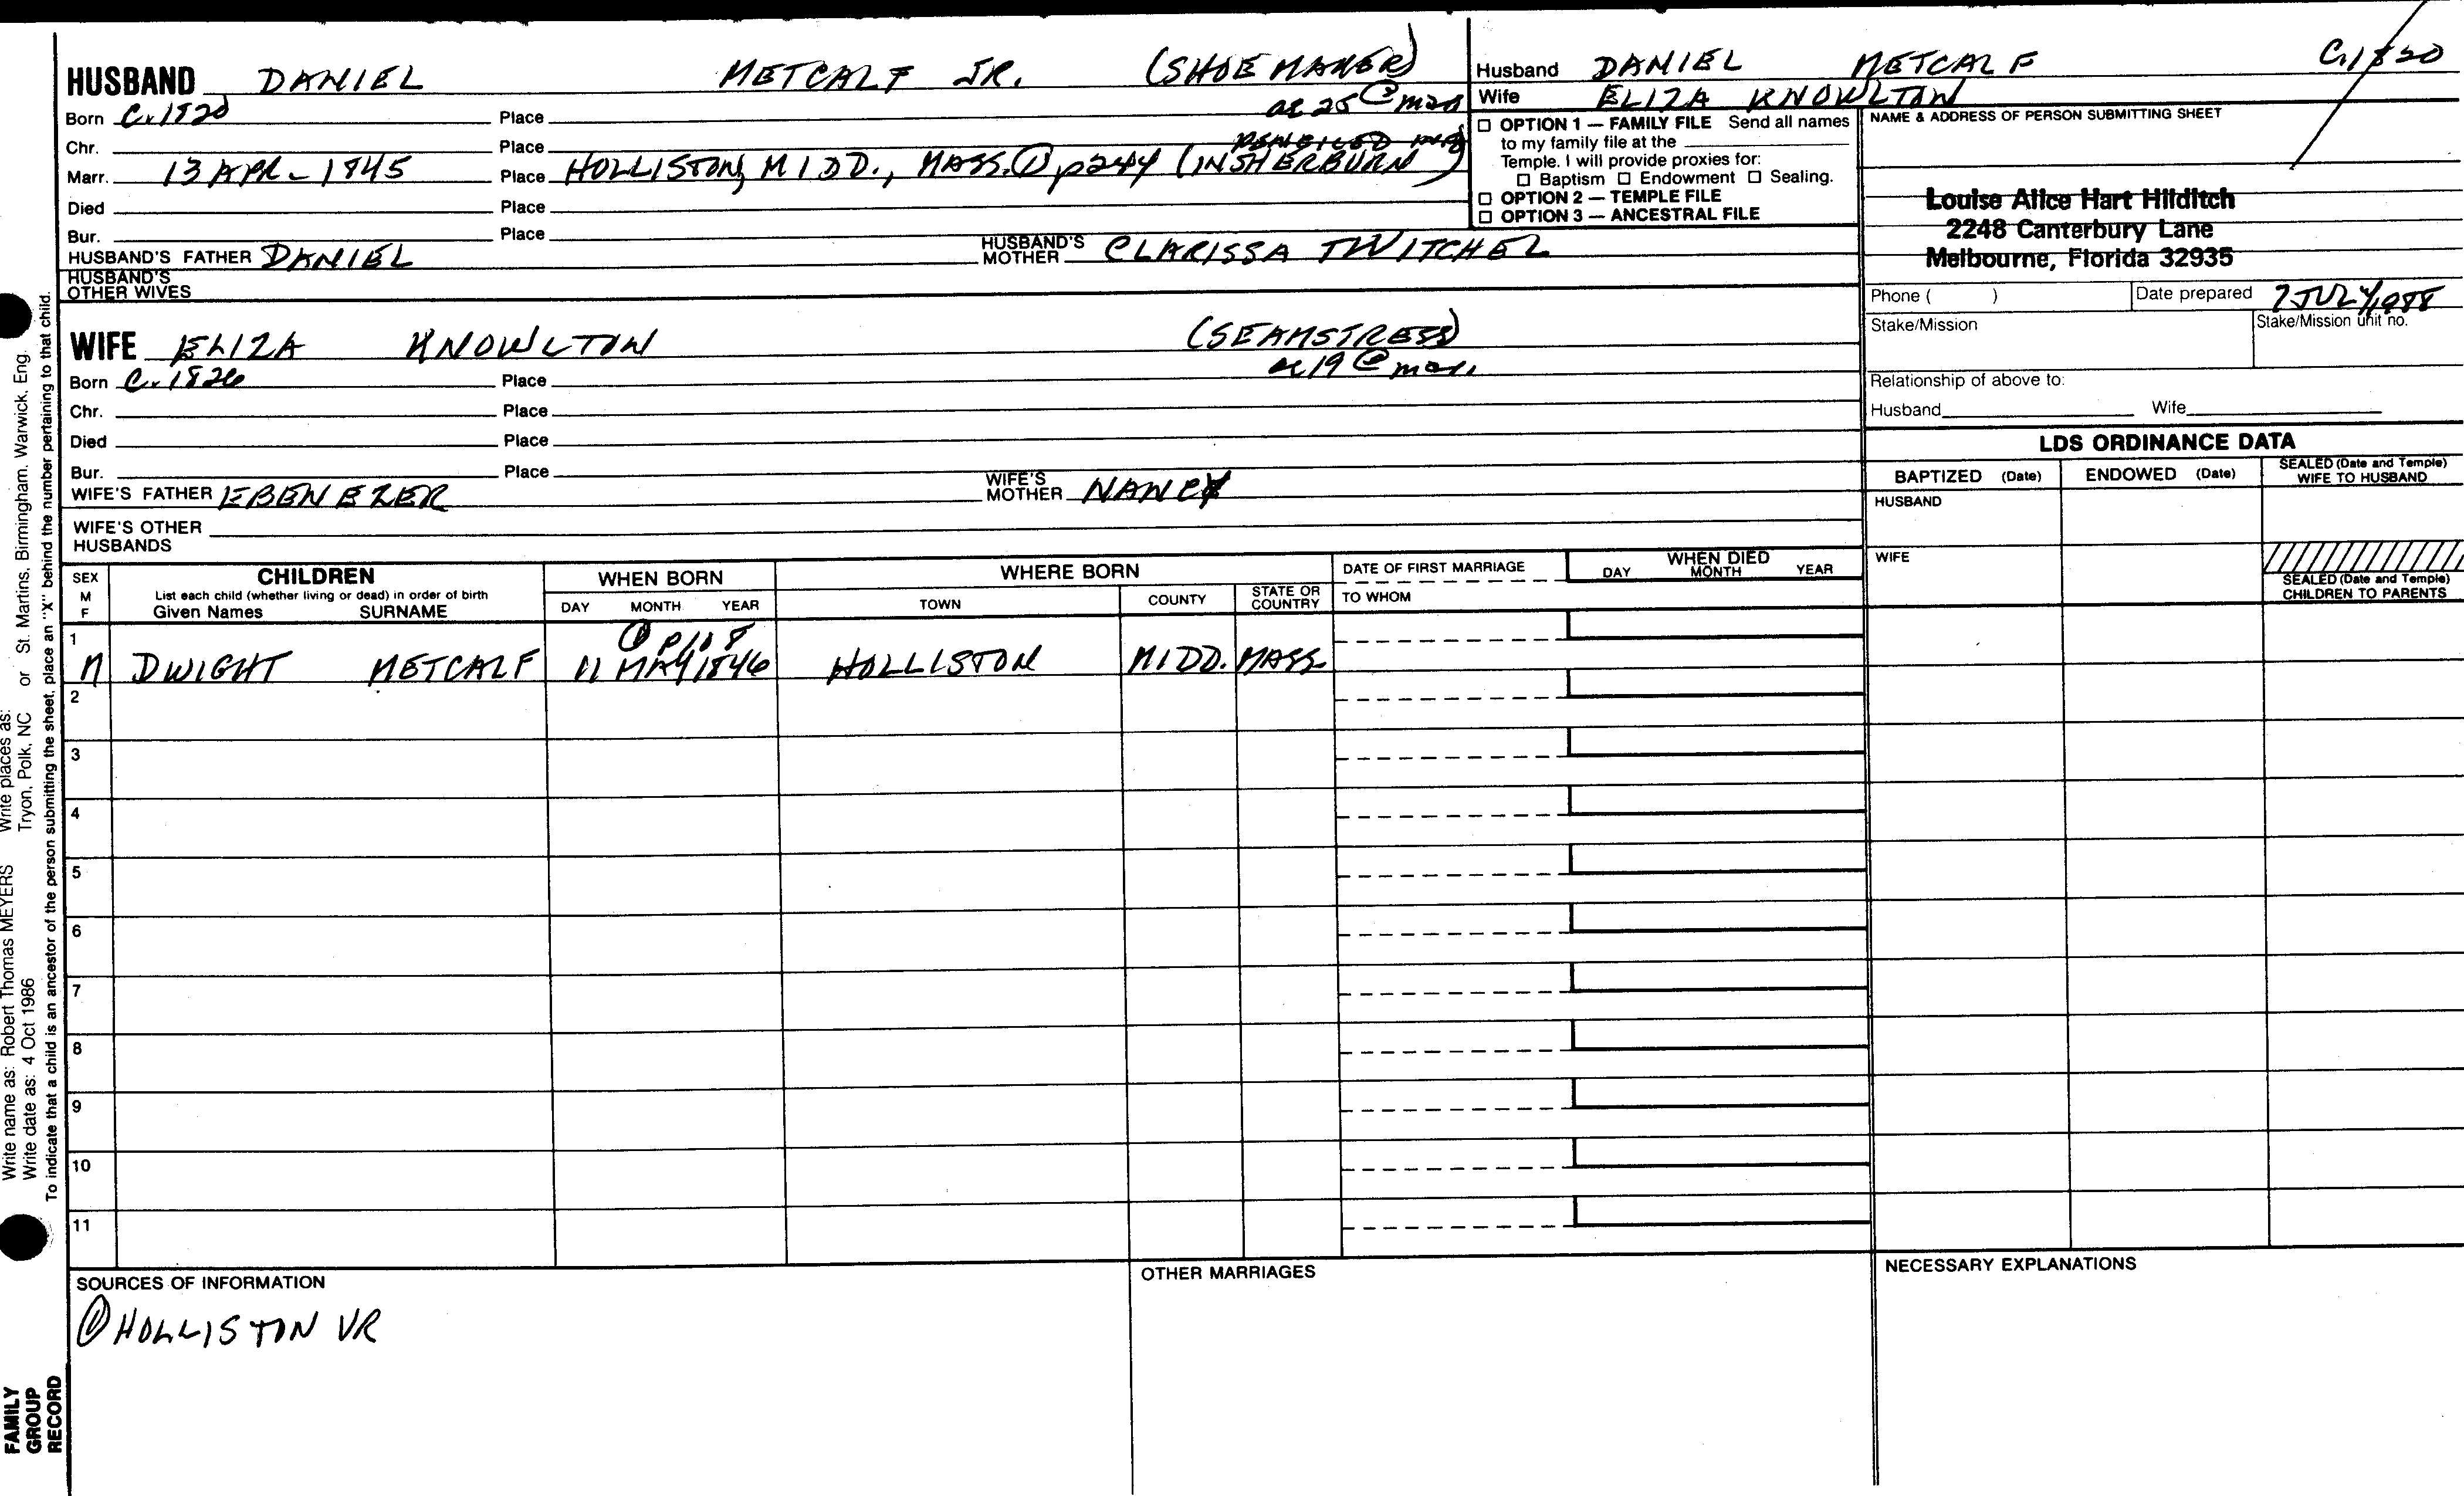 HUSBAND DANIEL METCALF JR. (SHOE MAKER)
ae 25 @ mar
Born C. 1820 Place
Chr. Place
PENCILED
Marr. 13 APR - 1845 Place HOLLISTON, MIDD., MASS. ① p244 (IN SHERBURN)
Died Place
Bur. Place
HUSBAND'S FATHER DANIEL HUSBAND'S MOTHER CLARISSA TWITCHEL
HUSBAND'S OTHER WIVES
WIFE ELIZA KNOWLTON (SEAMSTRESS)
ae 19 @ mar.
Born C. 1826 Place
Chr. Place
Died Place
Bur. Place
WIFE'S FATHER EBENEZER WIFE'S MOTHER NANCY
WIFE'S OTHER HUSBANDS
Husband DANIEL METCALF C. 1820
Wife ELIZA KNOWLTON
☐ OPTION 1 — FAMILY FILE Send all names
to my family file at the
Temple. I will provide proxies for:
☐ Baptism ☐ Endowment ☐ Sealing.
☐ OPTION 2 — TEMPLE FILE
☐ OPTION 3 — ANCESTRAL FILE
NAME & ADDRESS OF PERSON SUBMITTING SHEET
Louise Alice Hart Hilditch
2248 Canterbury Lane
Melbourne, Florida 32935
Phone ( ) Date prepared 7 JULY 1988
Stake/Mission Stake/Mission unit no.
Relationship of above to:
Husband Wife
LDS ORDINANCE DATA
BAPTIZED (Date) ENDOWED (Date) SEALED (Date and Temple) WIFE TO HUSBAND
HUSBAND
WIFE
SEALED (Date and Temple)
CHILDREN TO PARENTS
SEX M F
CHILDREN
List each child (whether living or dead) in order of birth
Given Names SURNAME
WHEN BORN
DAY MONTH YEAR
WHERE BORN
TOWN COUNTY STATE OR COUNTRY
DATE OF FIRST MARRIAGE
TO WHOM
WHEN DIED
DAY MONTH YEAR
1
① P108
M DWIGHT METCALF 11 MAY 1846 HOLLISTON MIDD. MASS.
2
3
4
5
6
7
8
9
10
11
SOURCES OF INFORMATION
① HOLLISTON VR
OTHER MARRIAGES
NECESSARY EXPLANATIONS
Write name as: Robert Thomas MEYERS Write places as:
Write date as: 4 Oct 1986 Tryon, Polk, NC or St. Martins, Birmingham. Warwick, Eng.
To indicate that a child is an ancestor of the person submitting the sheet, place an "X" behind the number pertaining to that child.
FAMILY
GROUP
RECORD